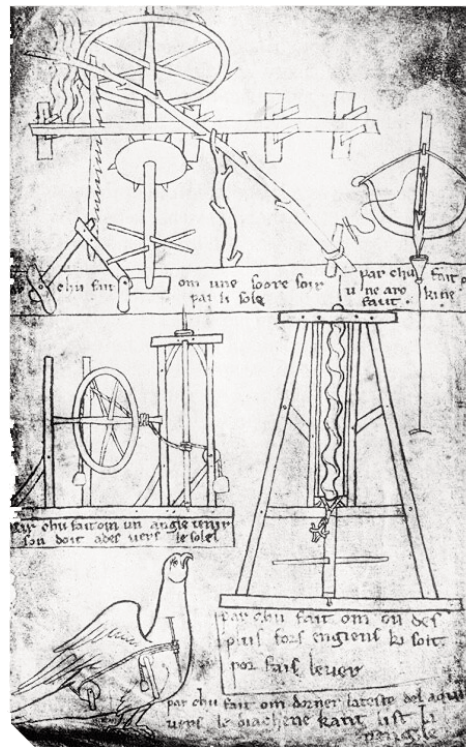 chu fait om une soore soir
par li sole
par chu fait o
u ne arc ki ne
faut.
par chu fait om un angle tenir
son doit ades uers le solel
par chu fait om on des
plus fors engiens ki soit.
por fais leuer
par chu fait om dorner la teste del
uers le diachene kant list